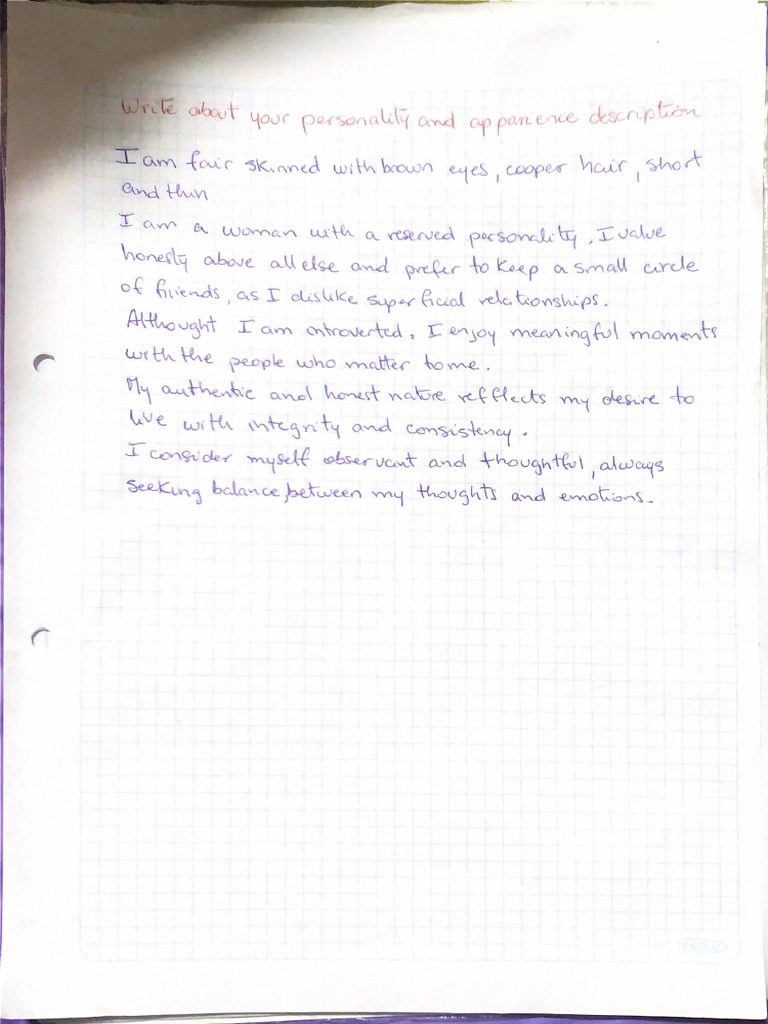 Write about your personality and apparience description
I am fair skinned with brown eyes, cooper hair, short
and thin
I am a woman with a reserved personality. I value
honesty above all else and prefer to keep a small circle
of friends, as I dislike superficial relationships.
Althought I am introverted, I enjoy meaningful moments
with the people who matter to me.
My authentic and honest nature refflects my desire to
live with integrity and consistency.
I consider myself observant and thoughtful, always
seeking balance, between my thoughts and emotions.